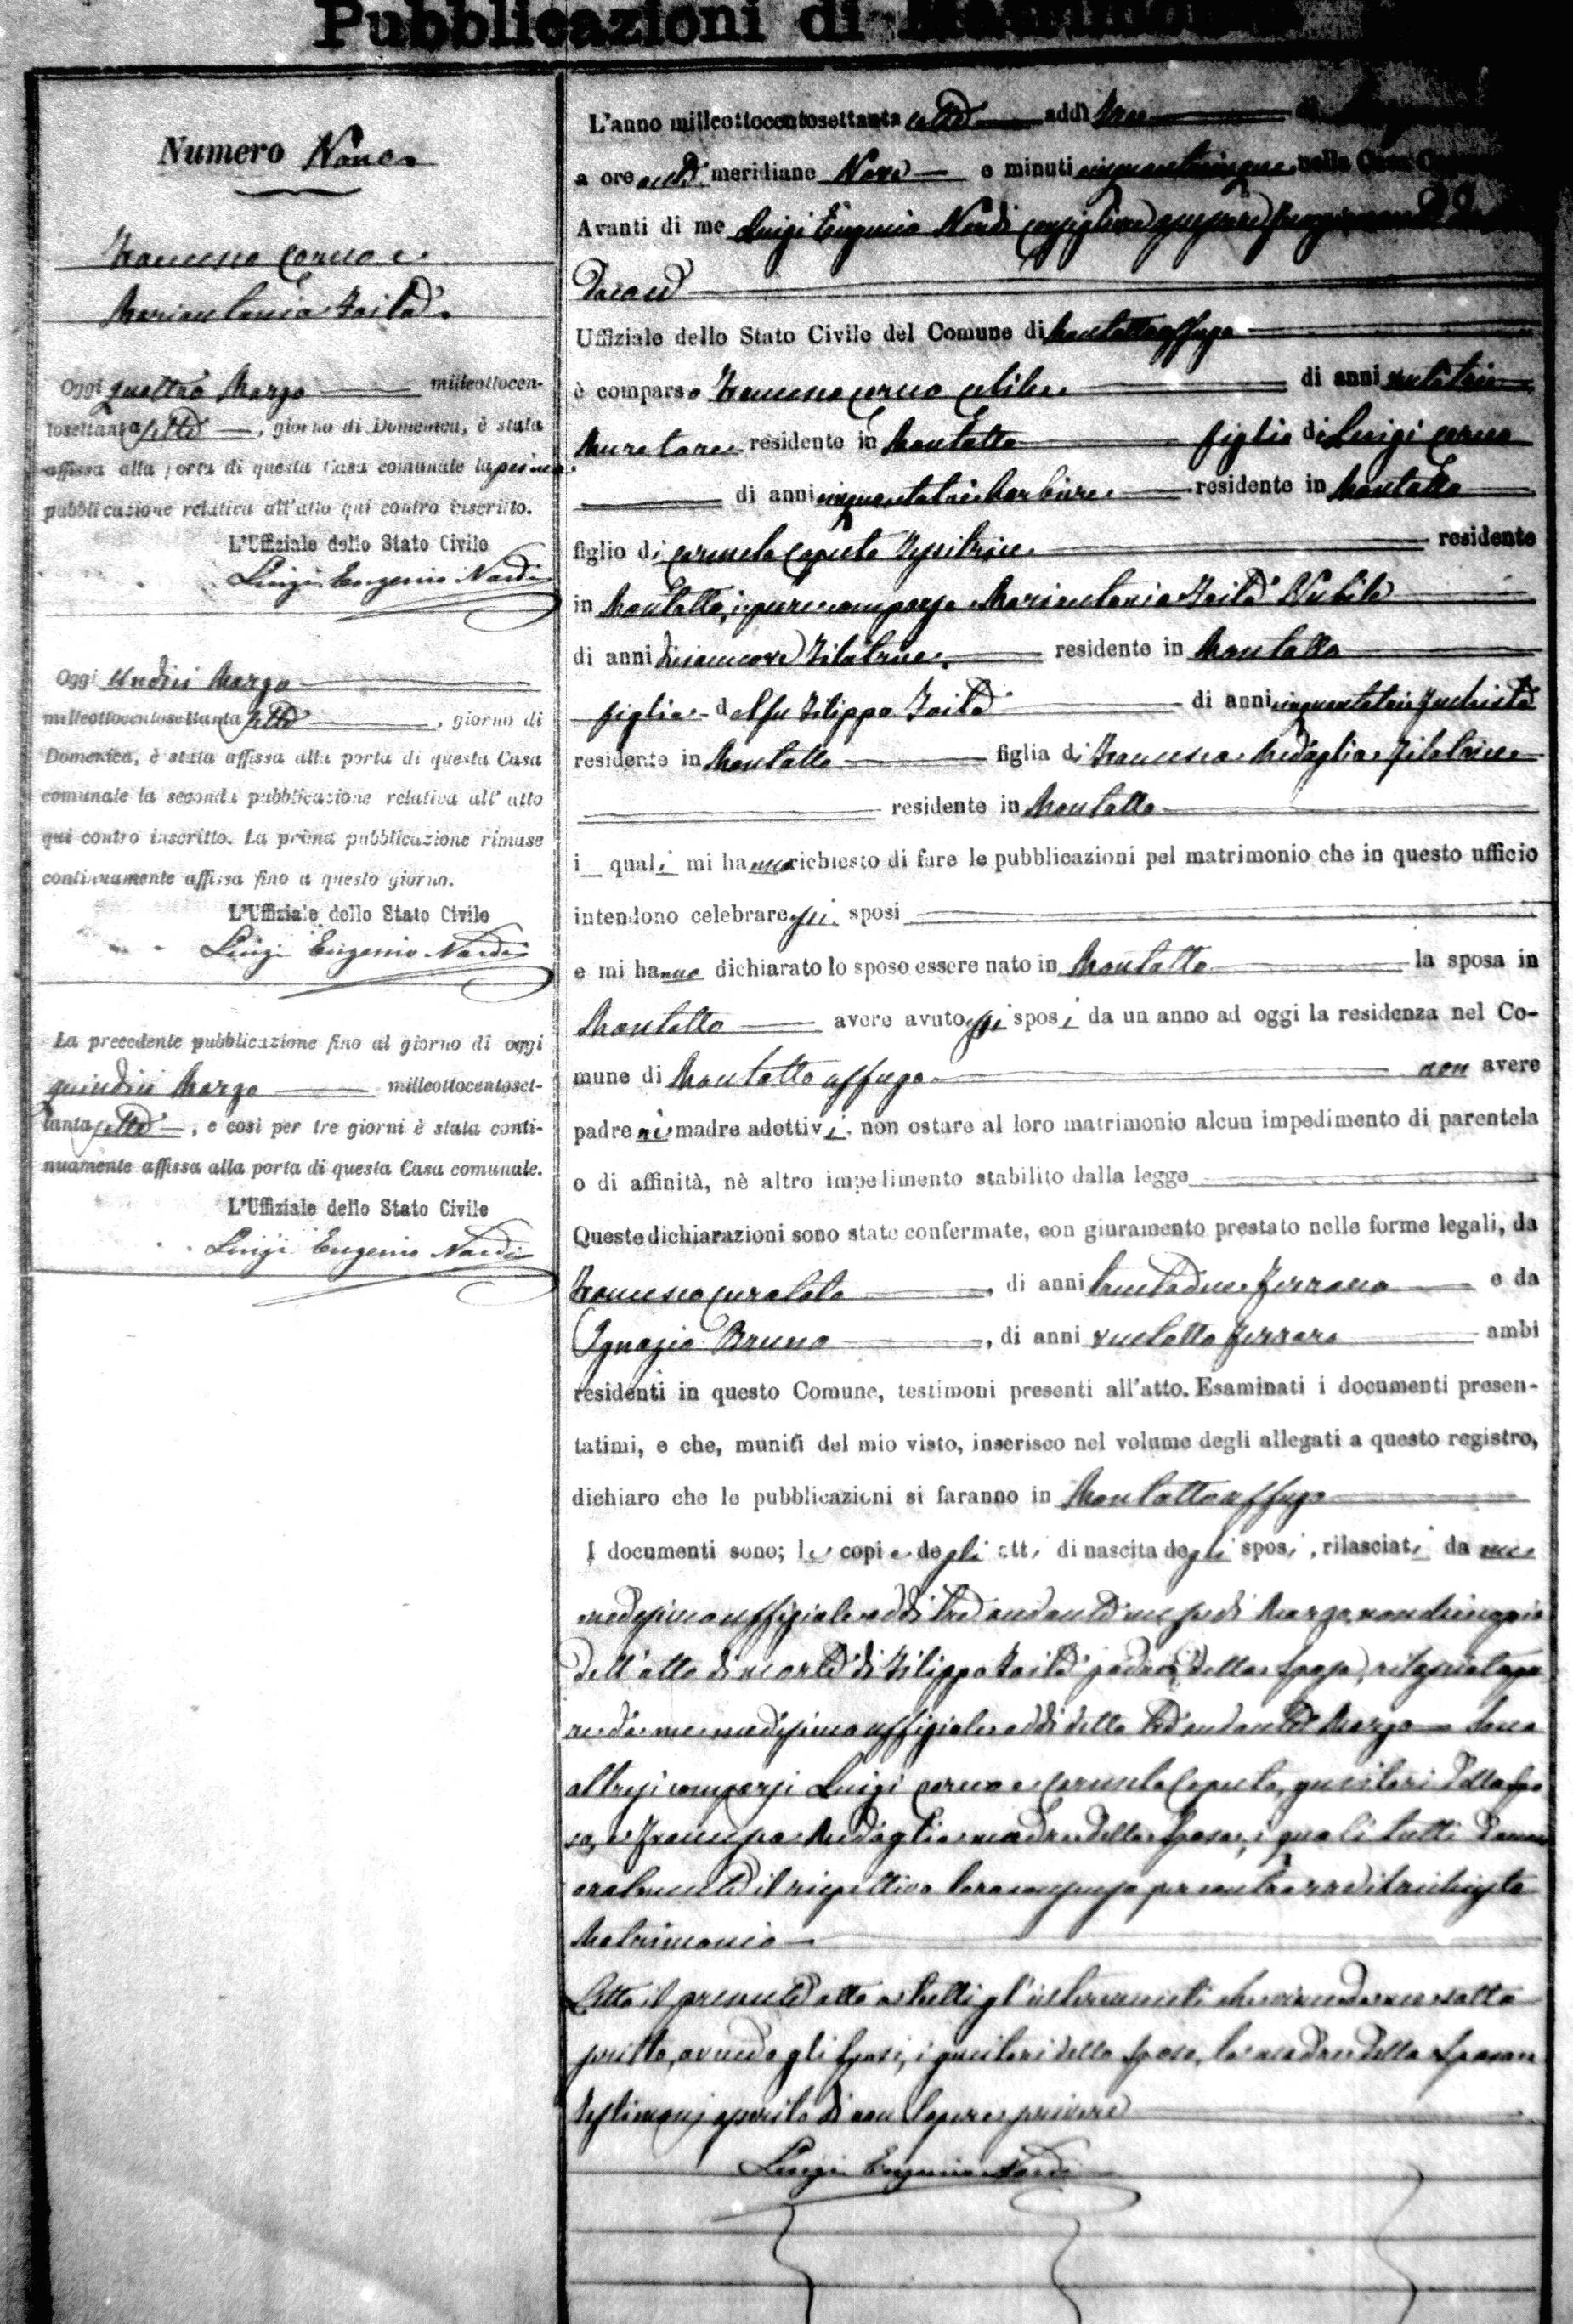 Pubblicazioni di
Numero Nono
Francesco Caruso e
Mariantonia Zaita
Oggi quattro Marzo milleottocen-
tosettanta sette, giorno di Domenica, è stata
affissa alla porta di questa Casa comunale la prima
pubblicazione relativa all'atto qui contro inscritto.
L'Uffiziale dello Stato Civile
Luigi Eugenio Nardi
Oggi Undici Marzo
milleottocentosettanta sette, giorno di
Domenica, è stata affissa alla porta di questa Casa
comunale la seconda pubblicazione relativa all'atto
qui contro inscritto. La prima pubblicazione rimase
continuamente affissa fino a questo giorno.
L'Uffiziale dello Stato Civile
Luigi Eugenio Nardi
La precedente pubblicazione fino al giorno di oggi
quindici Marzo milleottocentoset-
tanta sette, e così per tre giorni è stata conti-
nuamente affissa alla porta di questa Casa comunale.
L'Uffiziale dello Stato Civile
Luigi Eugenio Nardi
L'anno milleottocentosettanta sette addì tre di
a ore anti meridiane Nove e minuti cinquantacinque nella Casa
Avanti di me Luigi Eugenio Nardi Consigliere
Uffiziale dello Stato Civile del Comune di Montaltouffugo
è comparso Francesco celibe di anni ventitrè
Muratore residente in Montalto figlio di Luigi
di anni residente in Montalto
figlio di Carmela Caputo Tessitrice residente
in Montalto, è pure comparsa Mariantonia Zaita Nubile
di anni diciannove Filatrice residente in Montalto
figlia del fu Filippo Zaita di anni
residente in Montalto figlia di Francesca Medaglia Filatrice
residente in Montalto
i quali mi hanno richiesto di fare le pubblicazioni pel matrimonio che in questo ufficio
intendono celebrare essi sposi
e mi hanno dichiarato lo sposo essere nato in Montalto la sposa in
Montalto avere avuto essi sposi da un anno ad oggi la residenza nel Co-
mune di Montalto uffugo non avere
padre nè madre adottivi, non ostare al loro matrimonio alcun impedimento di parentela
o di affinità, nè altro impedimento stabilito dalla legge
Queste dichiarazioni sono state confermate, con giuramento prestato nelle forme legali, da
Francesco, di anni trentadue e da
Ignazio Bruno, di anni ventotto Ferraro ambi
residenti in questo Comune, testimoni presenti all'atto. Esaminati i documenti presen-
tatimi, e che, muniti del mio visto, inserisco nel volume degli allegati a questo registro,
dichiaro che le pubblicazioni si faranno in Montaltouffugo
I documenti sono; le copie degli atti di nascita degli sposi, rilasciati da me
medesimo uffiziale addì tre andante mese di Marzo, non che copia
dell'atto di morte di Filippo Zaita padre della sposa, rilasciata pu
re da me medesimo uffiziale addì detto tre andante Marzo Sono
altresì comparsi Luigi e Carmela Caputo, genitori dello spo
so, e Francesca Medaglia madre della Sposa, i quali tutti danno
oralmente il rispettivo loro consenso per contrarre il richiesto
Matrimonio
Letto il presente atto a tutti gl'intervenuti
scritto, avendo gli sposi, i genitori dello sposo, la madre della Sposa
testimoni asserito di non sapere scrivere
Luigi Eugenio Nardi